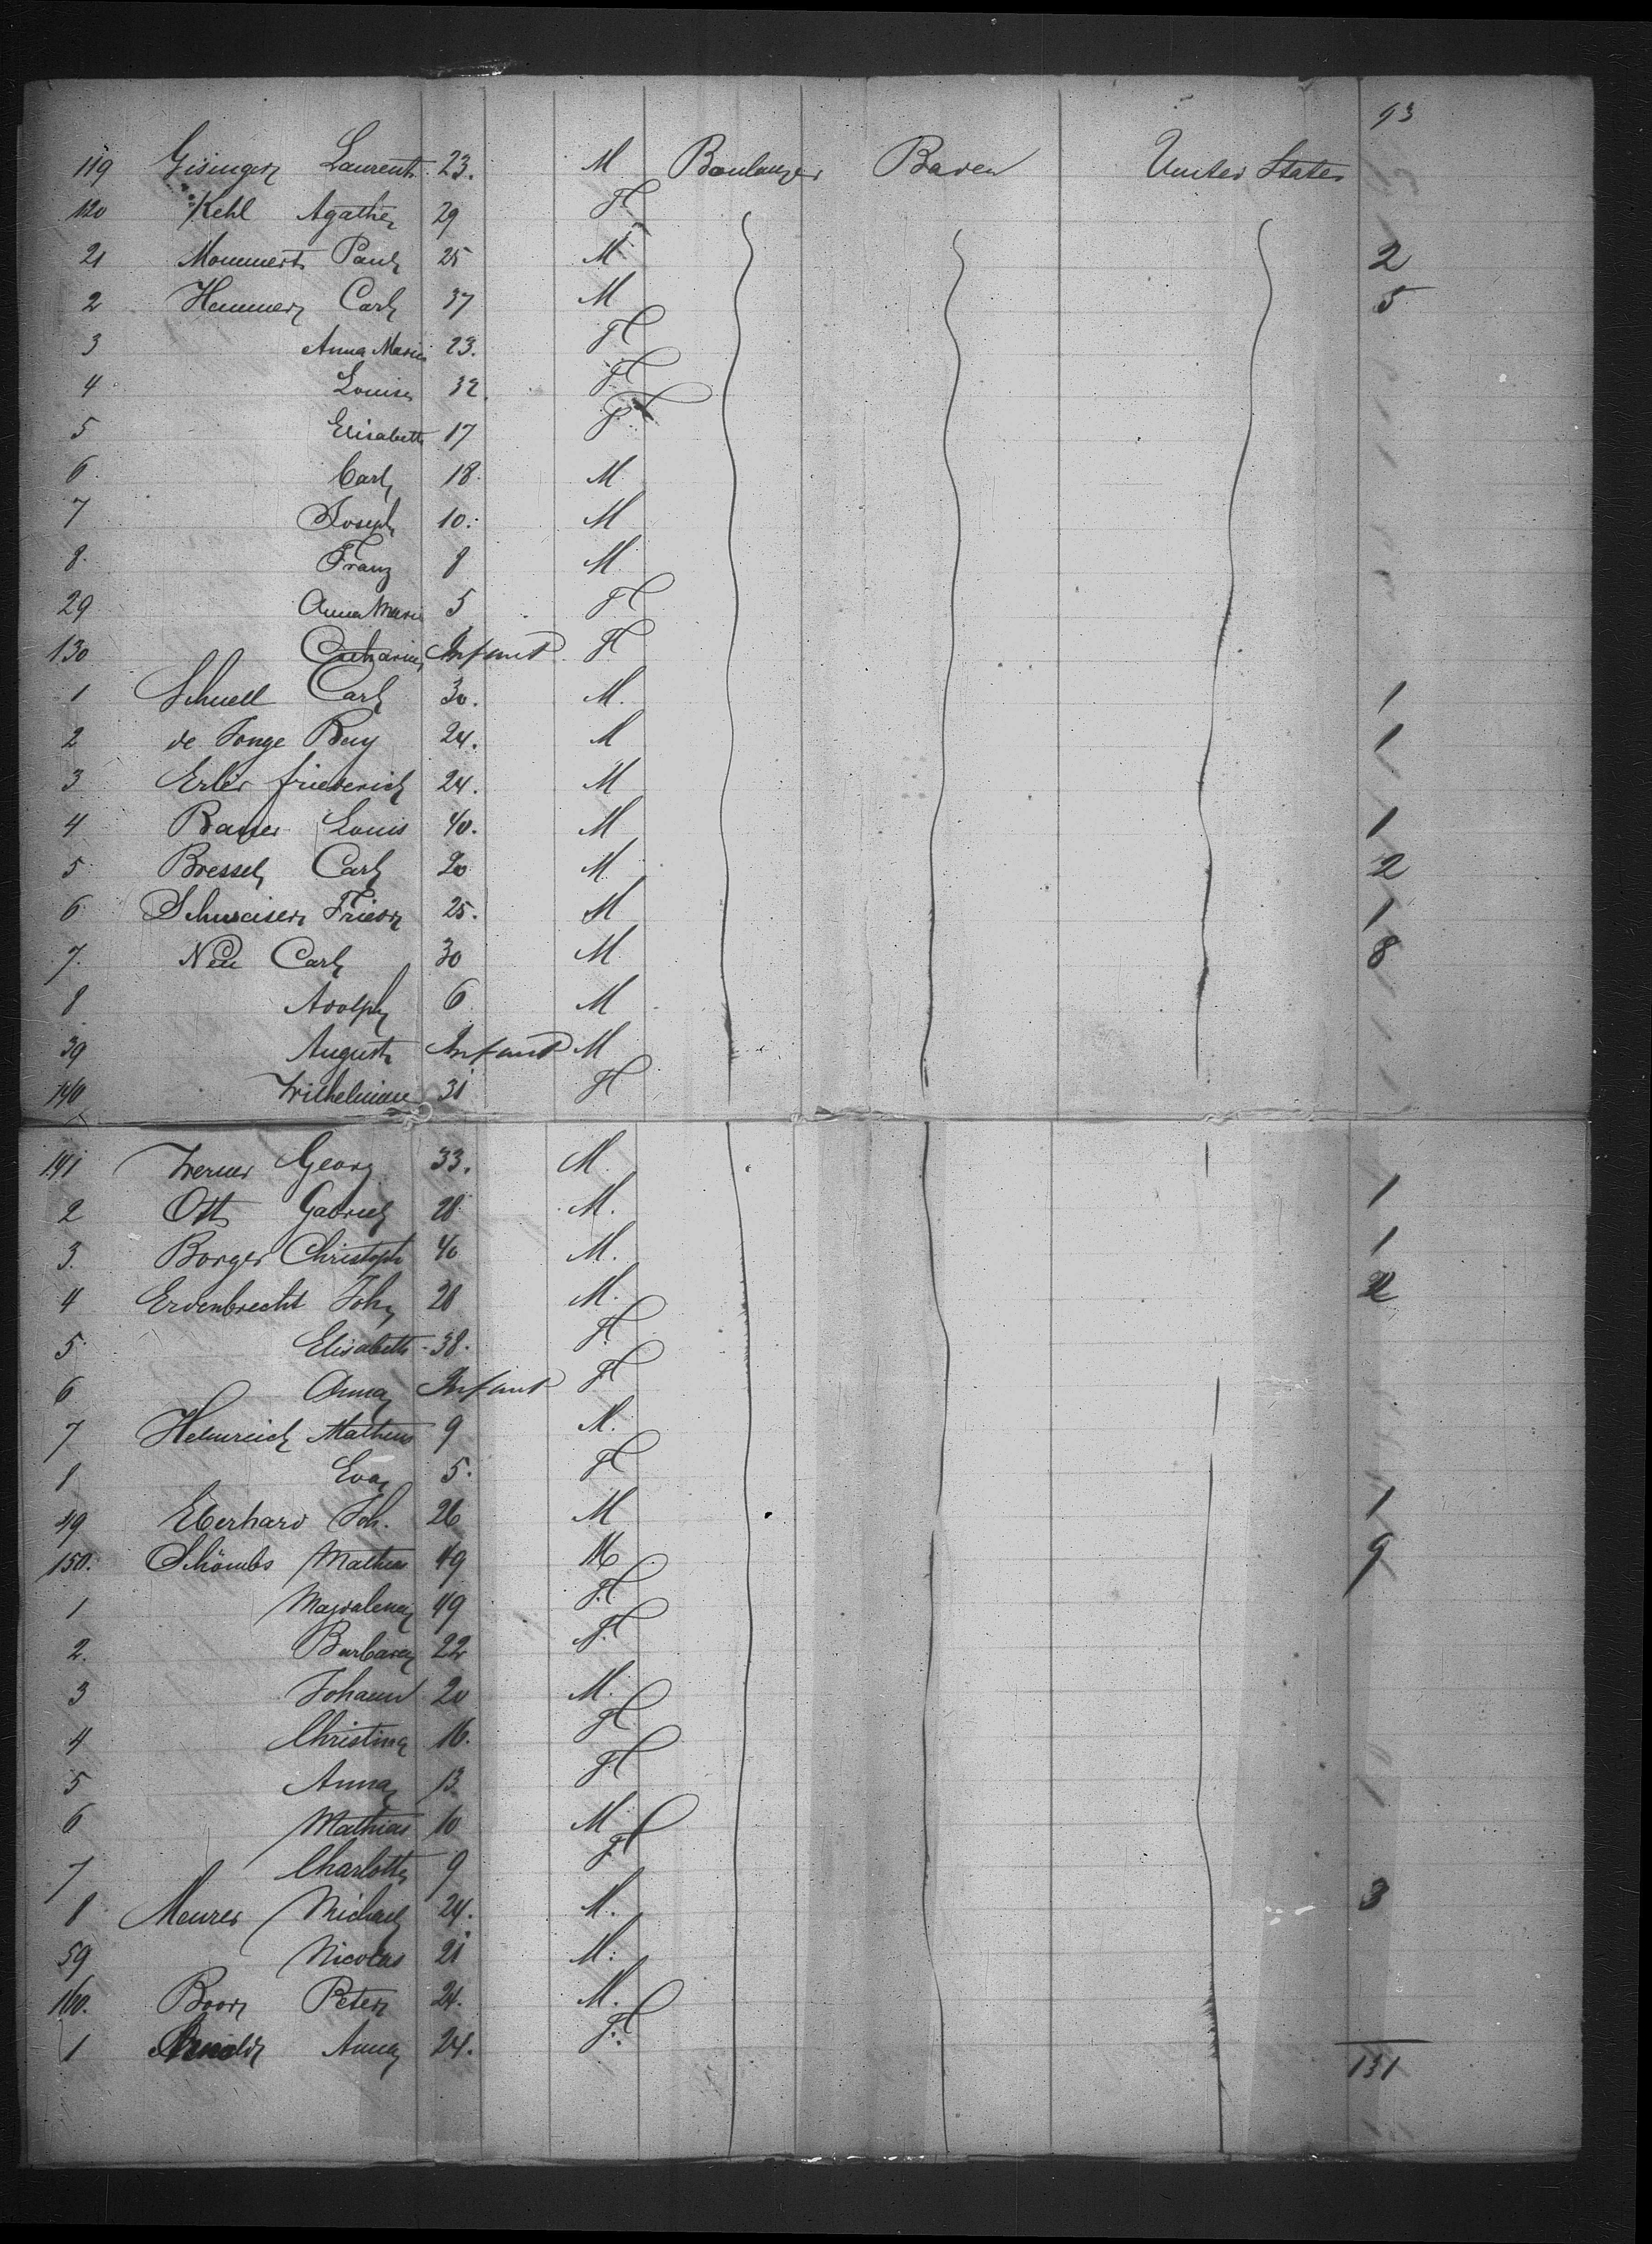 93
119 Gisinger Laurent 23. M Boulanger Baden United States
120 Kehl Agathe 29 F
21 Mommert Paul 25 M 2
2 Hemmer Carl 37 M 5
3 Anna Maria 23. F
4 Louise 32. F
5 Elisabeth 17 F
6. Carl 18. M
7 Joseph 10. M
8. Franz 8 M
29 Anna Maria 5 F
130 Catharina Infant F
1 Schnell Carl 30. M. 1
2 de Jonge Ray 24. M 1
3 Erler Friederich 24. M
4 Louis 40. M 1
5 Bressel Carl 20 M 2
6 Schweiser Friedr 25. M 1
7. Neu Carl 30 M 8
8 Adolph 6 M
39 August Infant M
140 Wilhelmine 31 F
141 Werner Georg 33. M.
2 Ott Gabriel 28 M. 1
3. Borger Christoph 40 M. 1
4 Erdenbrecht Joh 28 M. 2
5 Elisabeth 38. F.
6 Anna Infant F
7 Helmreich Matheus 9 M.
8 Eva 5. F
49 Eberhard Joh. 26 M 1
150. Schömbs Mathias 49 M 9
1 Magdalena 49 F.
2. Barbara 22 F.
3 Johann 20 M.
4 Christina 16. F
5 Anna 13 F.
6 Mathias 10 M
7 Charlotte 9 F
8 Meurer Michael 24. M. 3
59 Nicolas 21 M.
160. Boor Peter 24. M.
1 Arnold Anna 24. F.
131